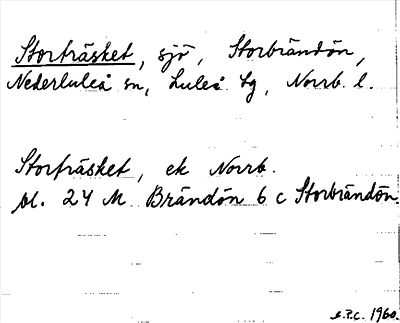 Storträsket, sjö, Storbrändön,
Nederluleå sn, Luleå tg, Norrb. l.
Storträsket, ek Norrb.
bl. 24 M Brändön 6 c Storbrändön.
E.P.C. 1960.